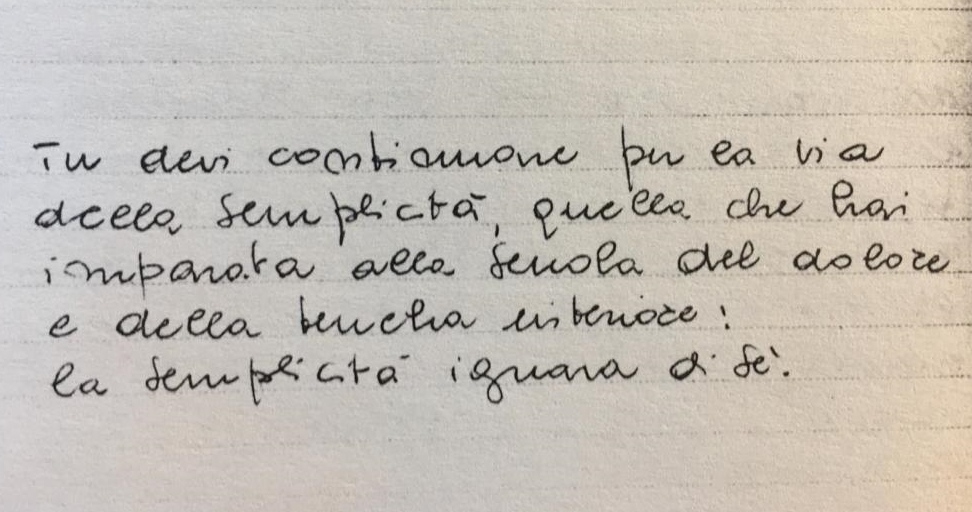 Tu devi continuare per la via
della semplicità, quella che hai
imparata alla scuola del dolore
e della interiore:
la semplicità ignara di sè.